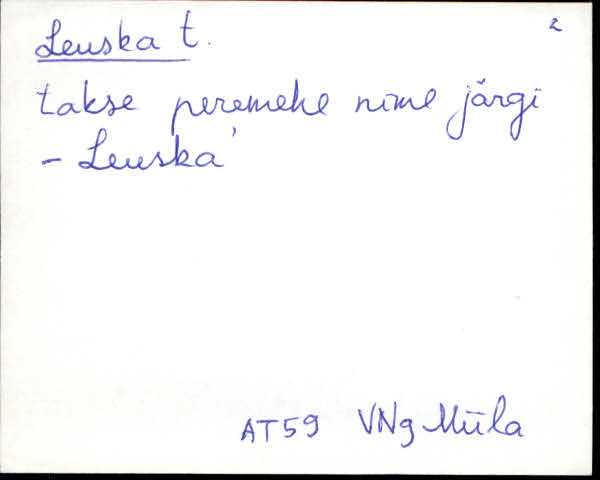 Leuska t. 2
takse peremehe nime järgi
- Leuska'
AT59 VNg Müla